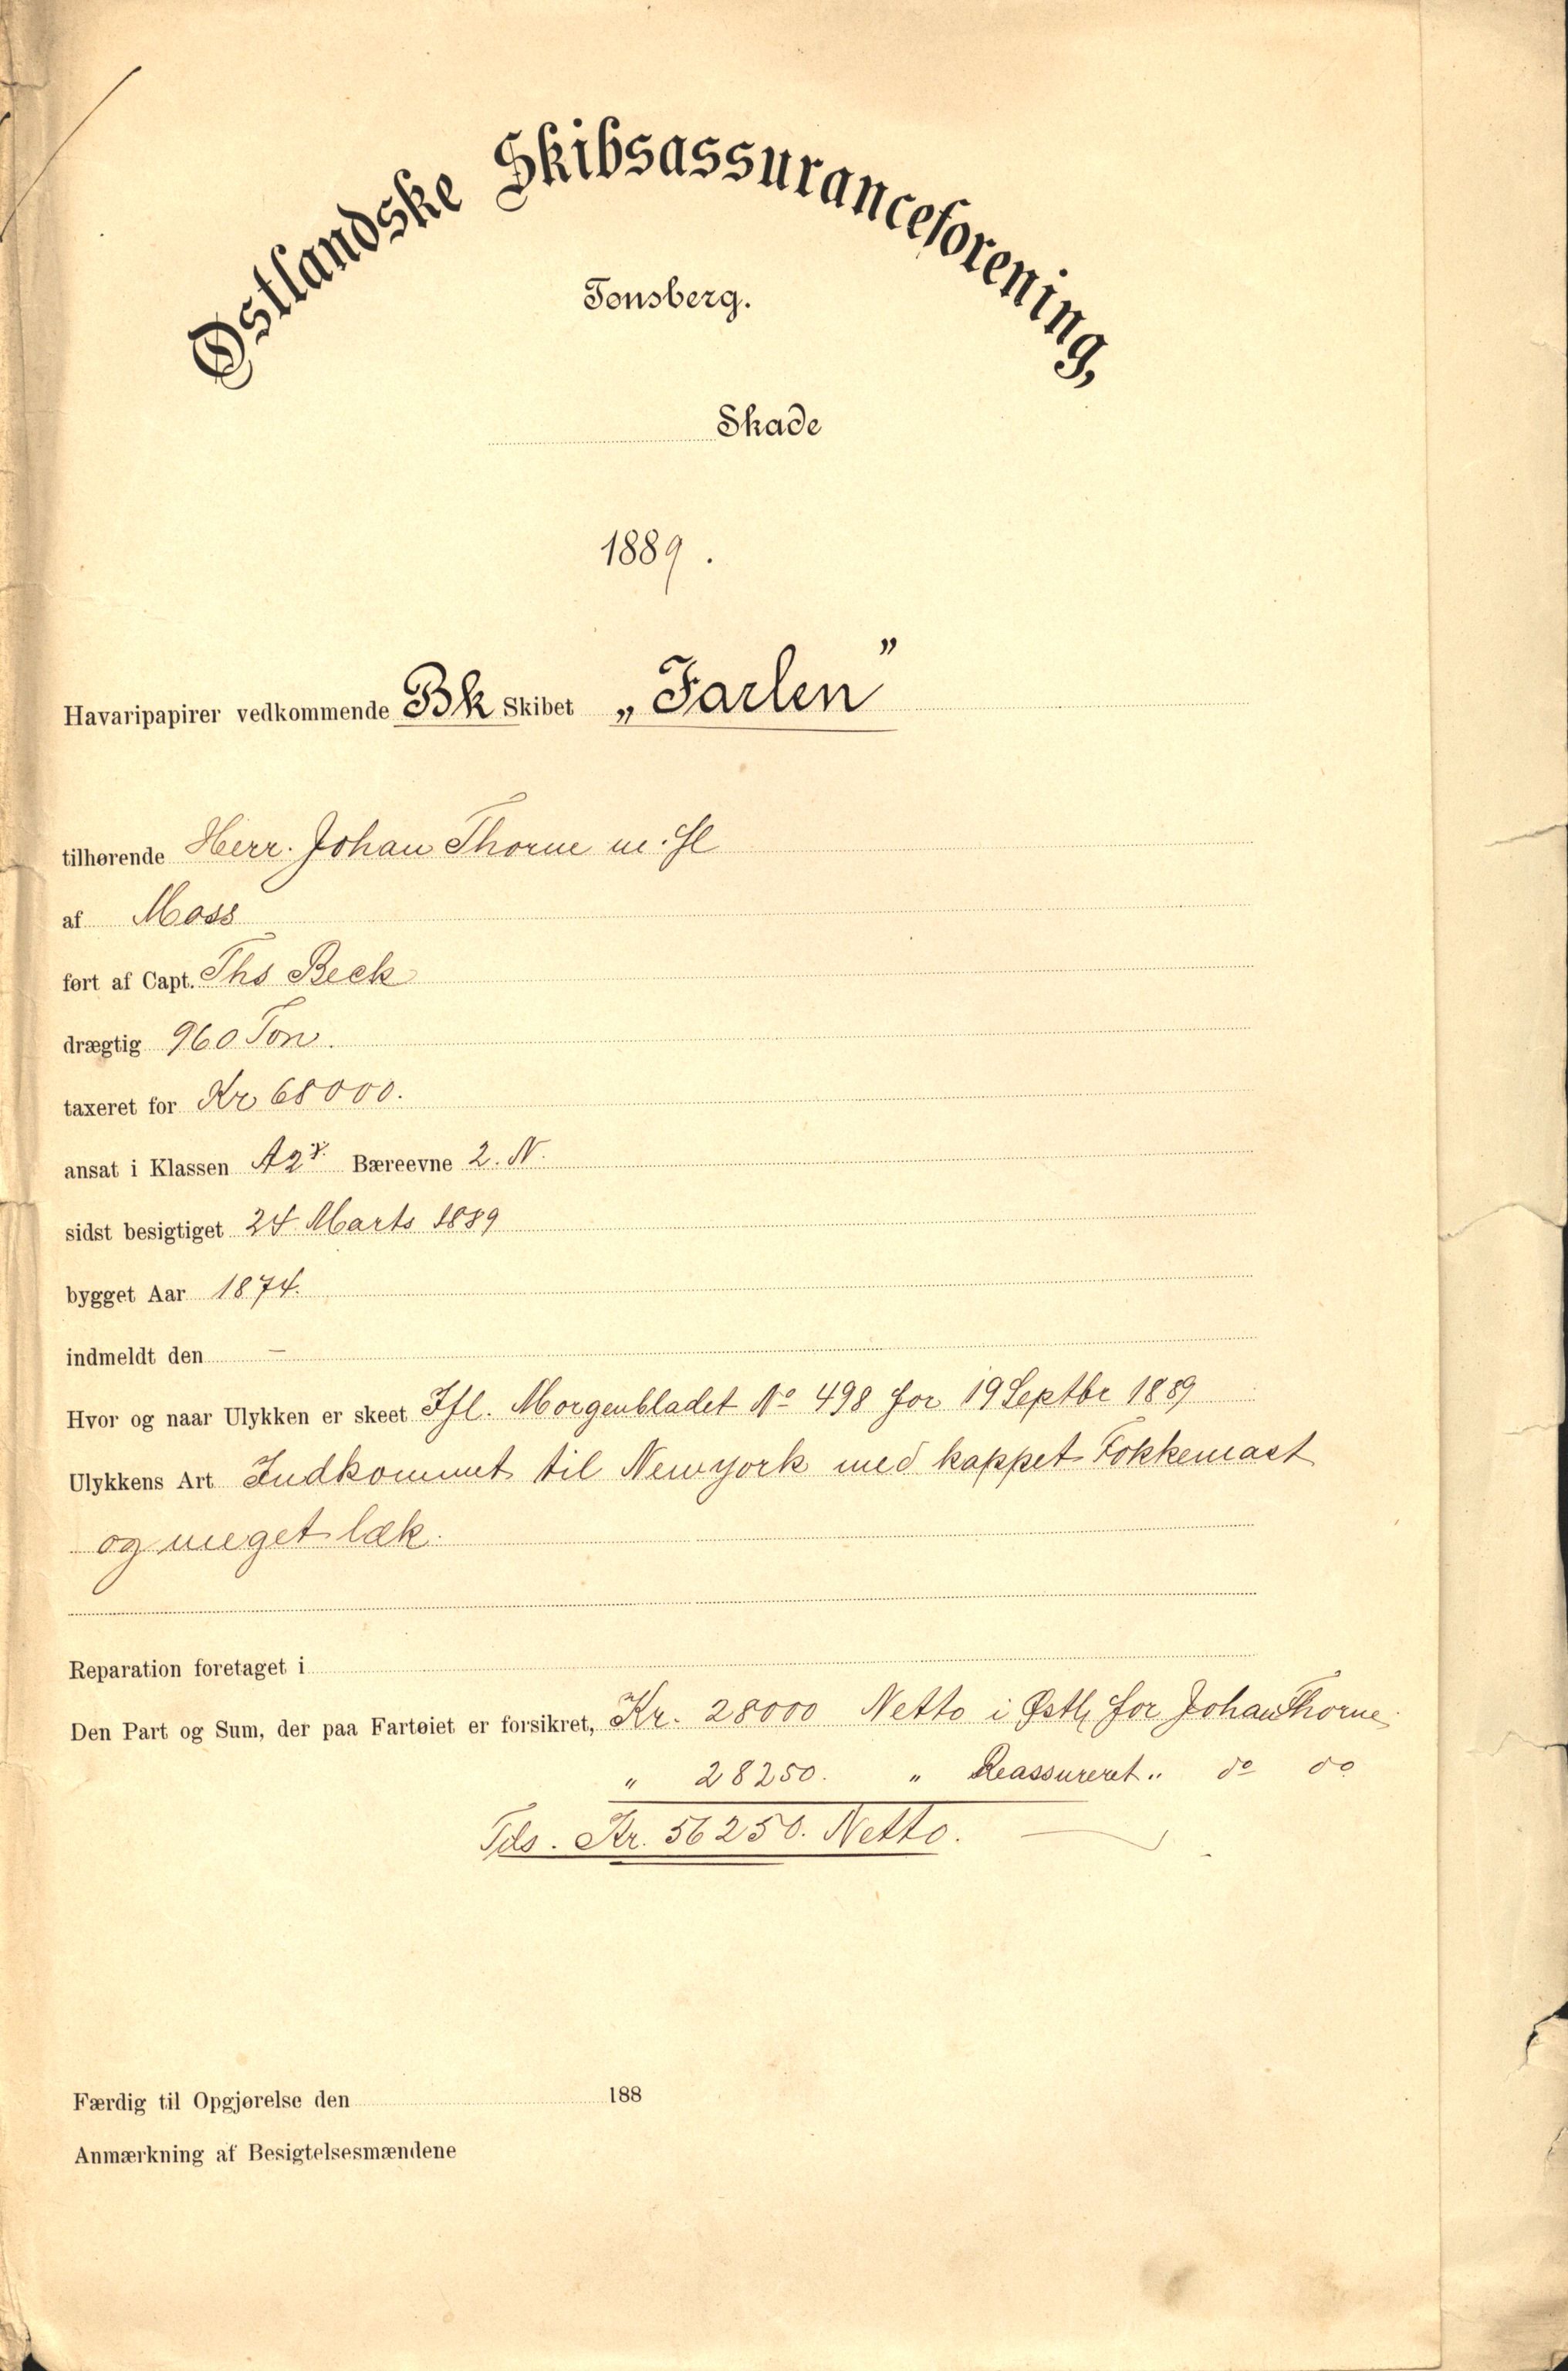 Østlandske Skibsassuranceforening,
Tønsberg.
Skade
1889.
Havaripapirer vedkommende Bk Skibet „Farlen”
tilhørende Herr. Johan Thorne m. fl
af Moss
ført af Capt. Ths Beck
drægtig 960 Ton.
taxeret for Kr 68000.
ansat i Klassen A2 Bæreevne 2. N.
sidst besigtiget 24 Marts 1889
bygget Aar 1874.
indmeldt den —
Hvor og naar Ulykken er skeet Ifl. Morgenbladet No 498 for 19 Septbr 1889
Ulykkens Art Indkommet til Newyork med kappet Fokkemast
og meget læk.
Reparation foretaget i
Den Part og Sum, der paa Fartøiet er forsikret, Kr. 28000 Netto i Østl. for Johan Thorne.
" 28250. " Reassureret " do do
Tils. Kr. 56250. Netto.
Færdig til Opgjørelse den 188
Anmærkning af Besigtelsesmændene